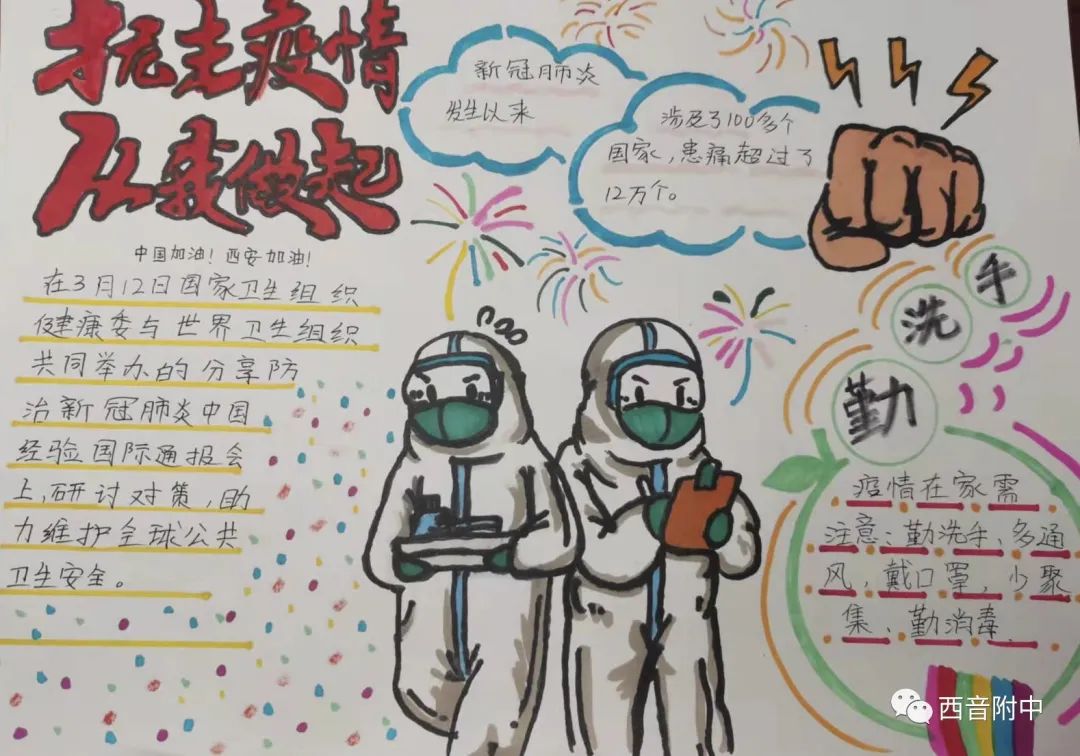 抗击疫情
从我做起
中国加油！西安加油！
在3月12日国家卫生组织
健康委与世界卫生组织
共同举办的分享防
治新冠肺炎中国
经验国际通报会
上，研讨对策，助
力维护全球公共
卫生安全。
新冠肺炎
发生以来
涉及了100多个
国家，患痛超过了
12万个。
勤洗手
疫情在家需
注意：勤洗手、多通
风，戴口罩，少聚
集、勤消毒.
西音附中